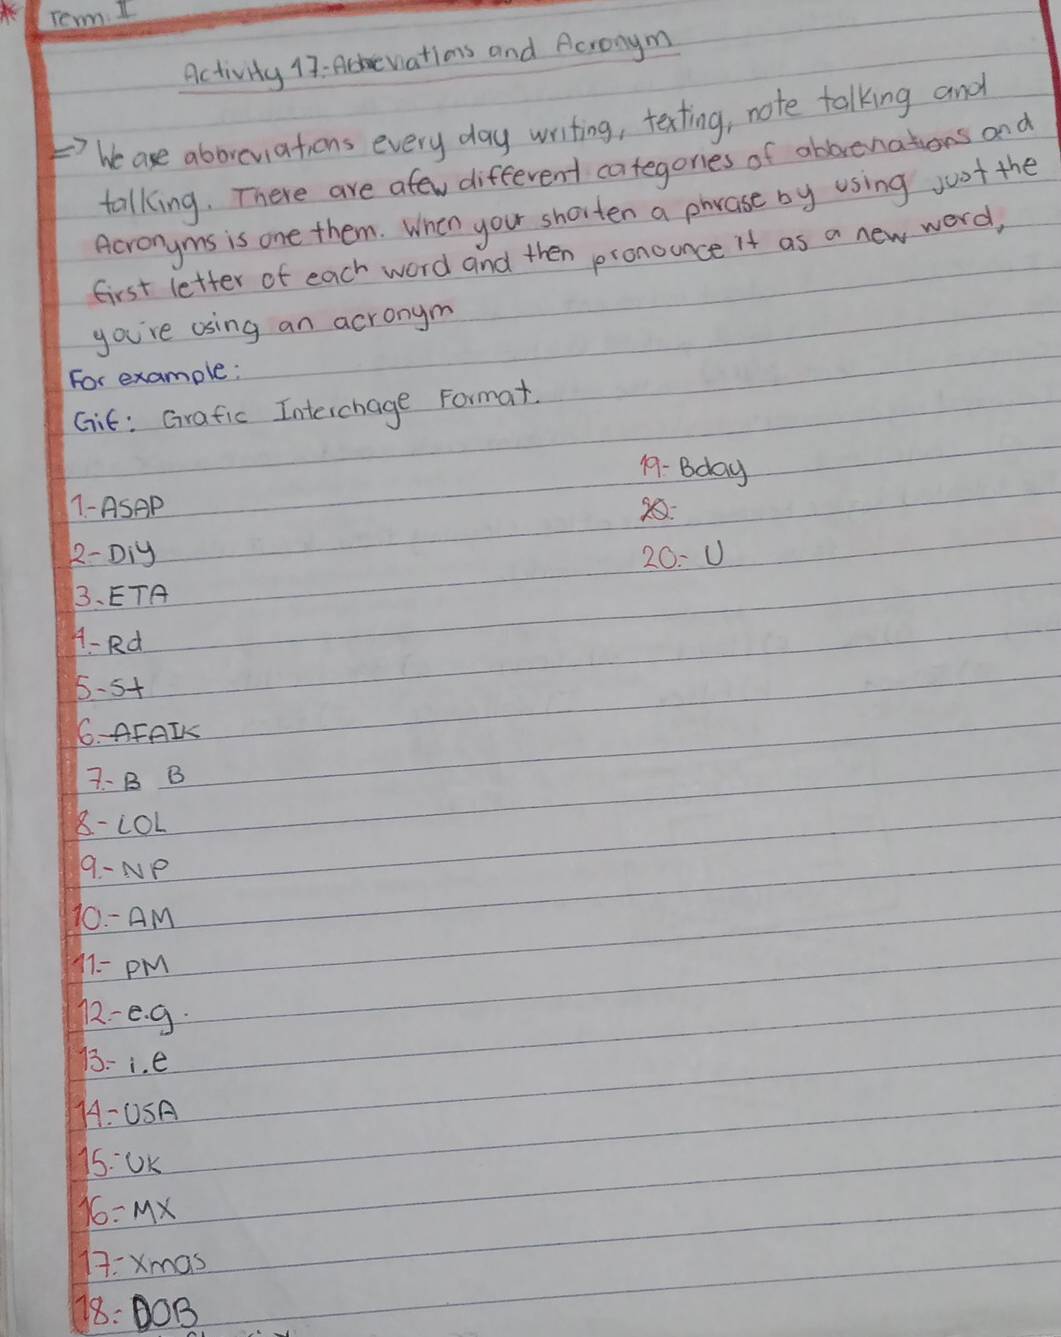 Term: I
Activity 17.- Abbeviations and Acronym
=> We are abbreviations every day writing, texting, note talking and
talking. There are afew different categories of abbreviations and
Acronyms is one them. When your shorten a phrase by using just the
first letter of each word and then pronounce it as a new word,
you're using an acronym
For example:
Gif: Grafic Interchage Format.
1.- ASAP
2- DIY
3. ETA
4.- Rd
5.- St
6.- AFAIK
7.- B B
8.- LOL
9.- NP
10.- AM
11.- PM
12.- e.g.
13.- i.e
14.- USA
15.- UK
16.- MX
17.- Xmas
18.- DOB
19.- Bday
20.-
20.- U